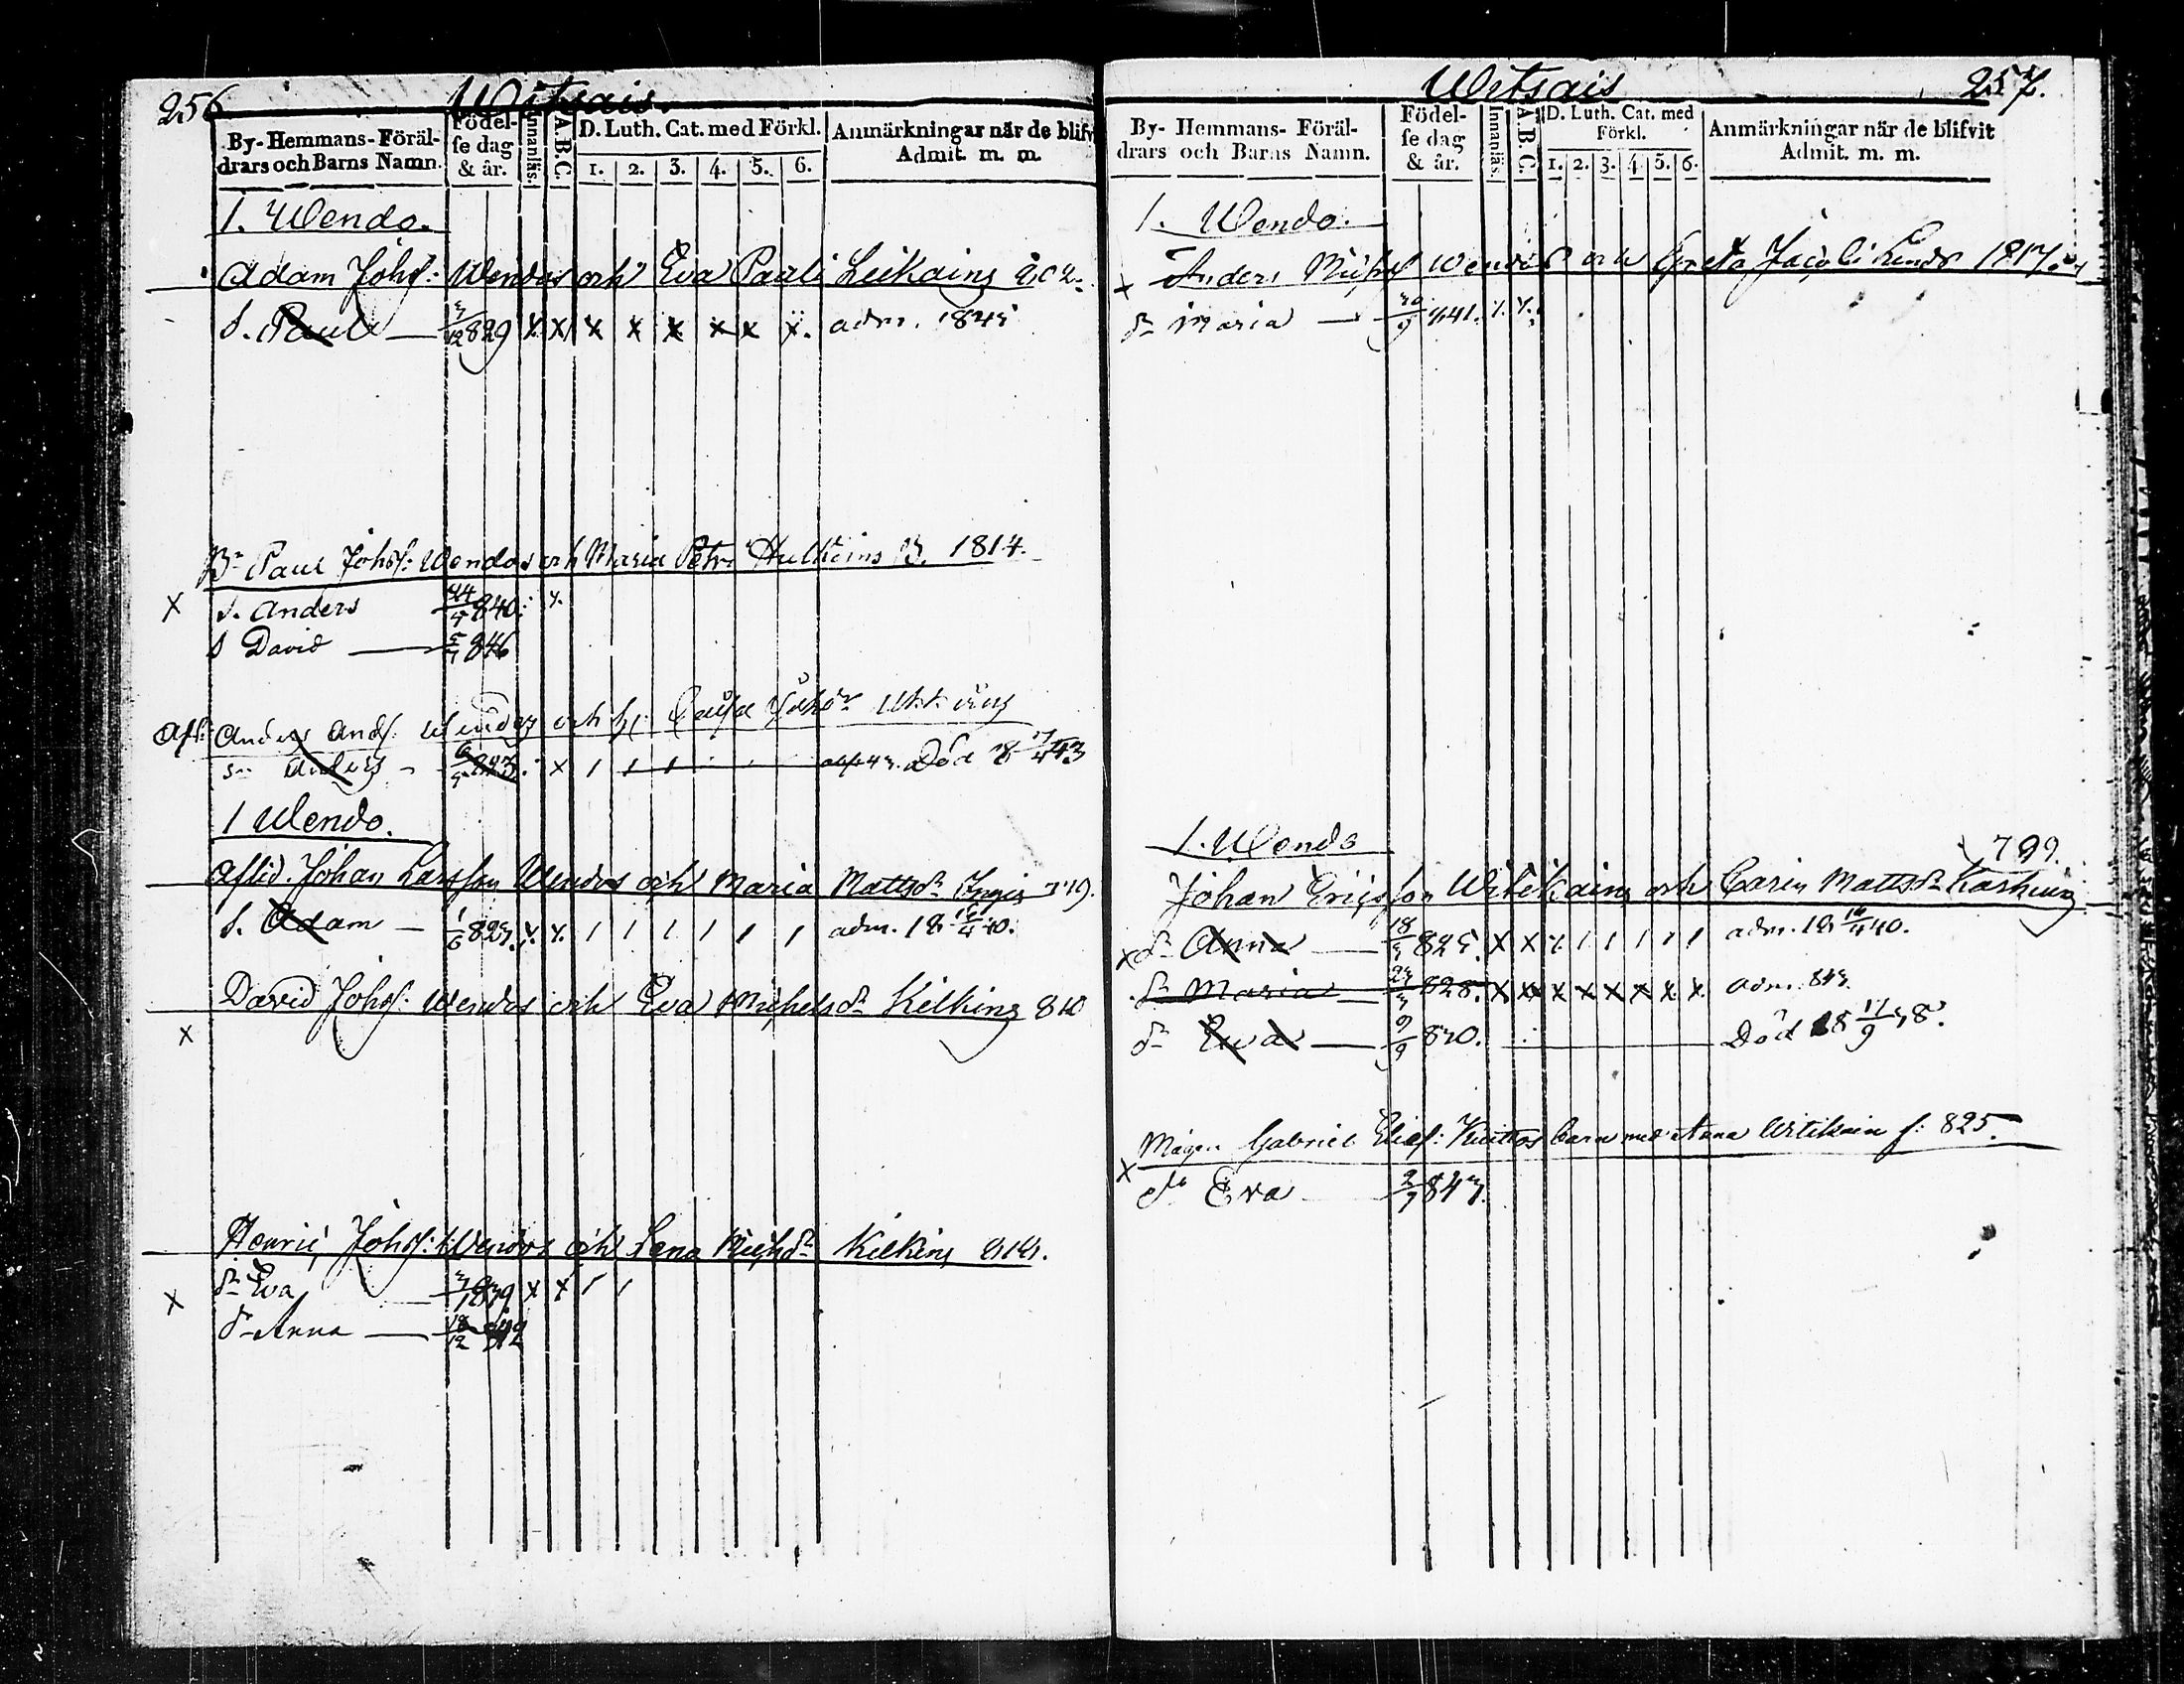 256
Witsais.
By-Hemmans-Föräl-
drars och Barns Namn.
Födel-
se dag
& år.
Innanläs.
A.B.C.
D. Luth. Cat. med Förkl.
1. 2. 3. 4. 5. 6.
Anmärkningar när de blifv
Admit. m. m.
1. Wendo.
Adam Johsf: Wendos och Eva Pauli Leikains 802.
S. Paul — 3/12 829 x x x x x x x x. adm. 1845
Br Paul Johsf: Wendos och Maria Petri B. 1814.
x S. Anders 840. x.
S David — 5/7 846
Afl: Anders Andf. Wendos och h:
sn Anders - x 1 1 1 Död 18 17/4 43
1 Wendo.
Aflid. Johan Larsson Wendos och Maria Mattsdr
S. Adam — 1/6 823. x. x. 1 1 1 1 1 1 adm. 18 16/4 40.
David Johsf: Wendos och Eva Michelsdr Kilkins 810
x
Henric Johsf: Wendos och Lena Michdr Kilkins
x dr Eva — 3/1 839 x x 1 1
dr Anna — 18/12 842
257.
Witsais
By- Hemmans- Föräl-
drars och Barns Namn.
Födel-
se dag
& år.
Innanläs.
A.B.C.
D. Luth. Cat. med
Förkl.
1. 2. 3. 4. 5. 6.
Anmärkningar när de blifvit
Admit. m. m.
1. Wendo.
x Anders Wendos och Greta Jacobi 1817.
dr Maria — 30/9 841. x. x.
1. Wendo
799.
Johan Ericsson Witikains och Carin Mattsdr
x dr Anna — 18/3 825. x x x 1 1 1 1 1 adm. 18 16/4 40.
dr Maria — 23/3 828. x x x x x x x x. adm. 843
dr Eva — 9/9 830. — Död 18 11/9 38.
Mågen Gabriel Eliaf: Kuittos barn med Anna Witikain f: 825.
x dr Eva 2/7 847.